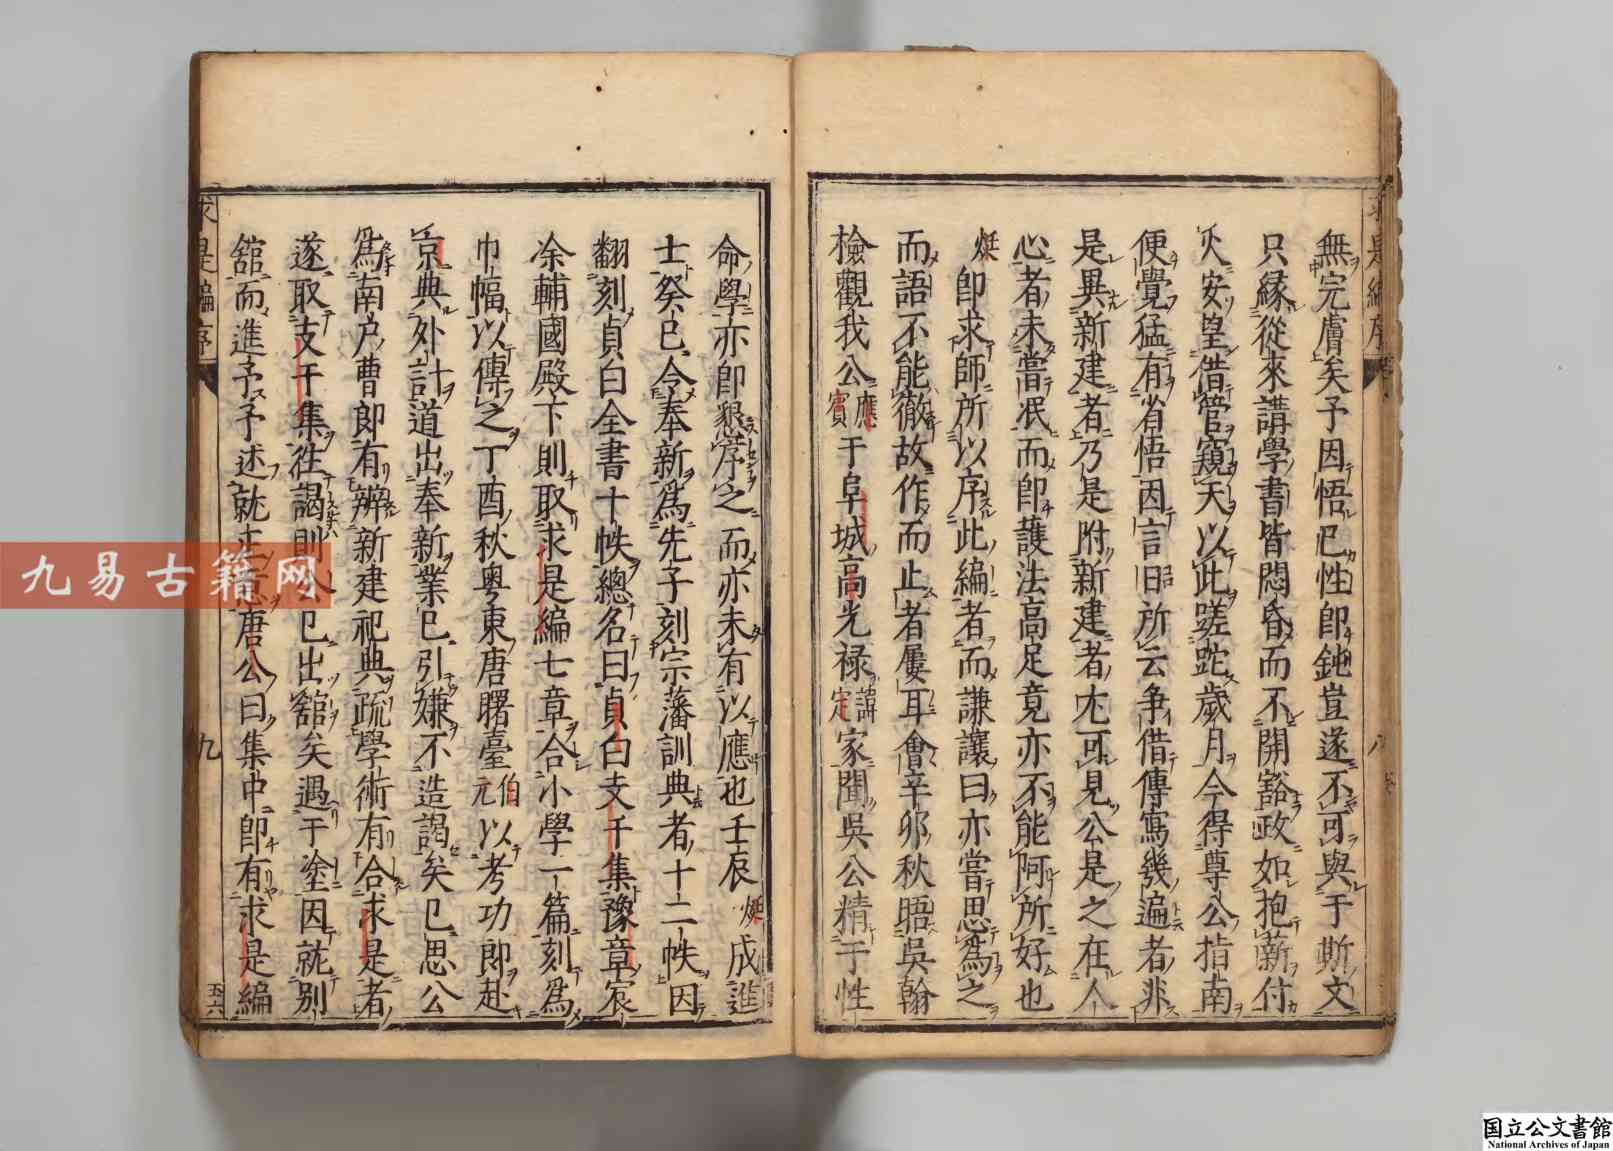 無完膚矣予因悟已性即鈍豈遂不可與于斯文
只縁從來講學書皆悶昏而不開豁政如抱薪付
火安望借管窺天以此蹉跎歲月今得尊公指南
便覺猛有省悟因言旧所云争借傳寫幾遍者非
是異新建者乃是附新建者尤可見公是之在人
心者未嘗泯而即護法高足竟亦不能阿所好也
烶即求師所以序此編者而謙讓曰亦嘗思爲之
而語不能徹故作而止者屢耳會辛卯秋晤吳翰
檢觀我公應賓于阜城高光禄諱定家聞吳公精于性
命學亦即懇序之而亦未有以應也壬辰烶成進
士癸巳令奉新爲先子刻宗藩訓典者十二帙因
翻刻貞白全書十帙總名曰貞白支干集豫章宸
凃輔國殿下則取求是編七章合小學一篇刻爲
巾幅以傳之丁酉秋粤東唐曙臺伯元以考功郎赴
京典外計道出奉新業已引嫌不造謁矣已思公
爲南户曹郎有辨新建祀典疏學術有合求是者
遂取支干集往謁則公已出舘矣遇于塗因就别
舘而進予予述就正意唐公曰集中即有求是編
求是編序
九
五六
求是編序
八
九易古籍网
国立公文書館
National Archives of Japan